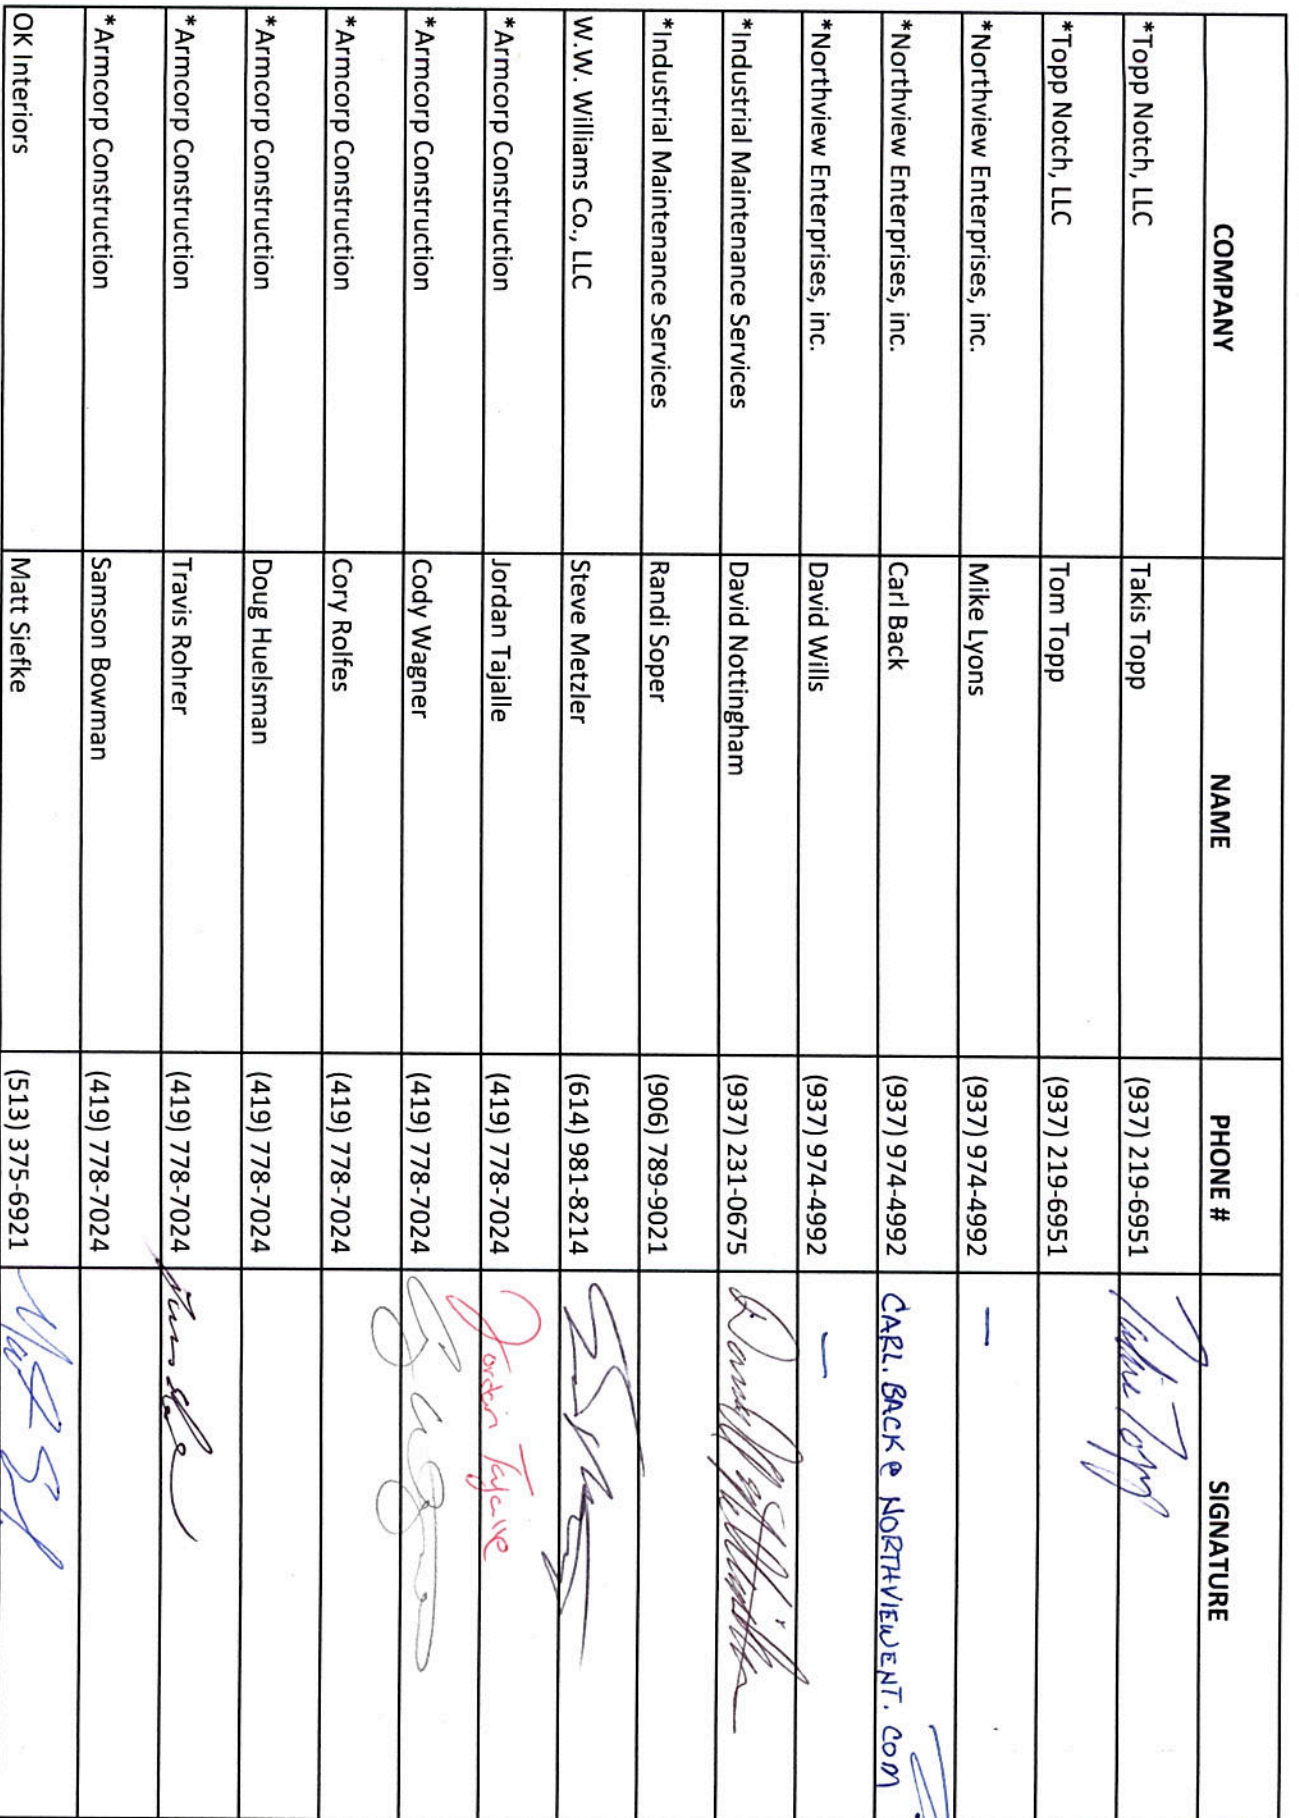 COMPANY NAME PHONE # SIGNATURE
*Topp Notch, LLC Takis Topp (937) 219-6951
*Topp Notch, LLC Tom Topp (937) 219-6951
*Northview Enterprises, inc. Mike Lyons (937) 974-4992 —
*Northview Enterprises, inc. Carl Back (937) 974-4992 CARL.BACK@NORTHVIEWENT.COM
*Northview Enterprises, inc. David Wills (937) 974-4992 —
*Industrial Maintenance Services David Nottingham (937) 231-0675
*Industrial Maintenance Services Randi Soper (906) 789-9021
W.W. Williams Co., LLC Steve Metzler (614) 981-8214
*Armcorp Construction Jordan Tajalle (419) 778-7024 Jordan Tajalle
*Armcorp Construction Cody Wagner (419) 778-7024
*Armcorp Construction Cory Rolfes (419) 778-7024
*Armcorp Construction Doug Huelsman (419) 778-7024
*Armcorp Construction Travis Rohrer (419) 778-7024
*Armcorp Construction Samson Bowman (419) 778-7024
OK Interiors Matt Siefke (513) 375-6921